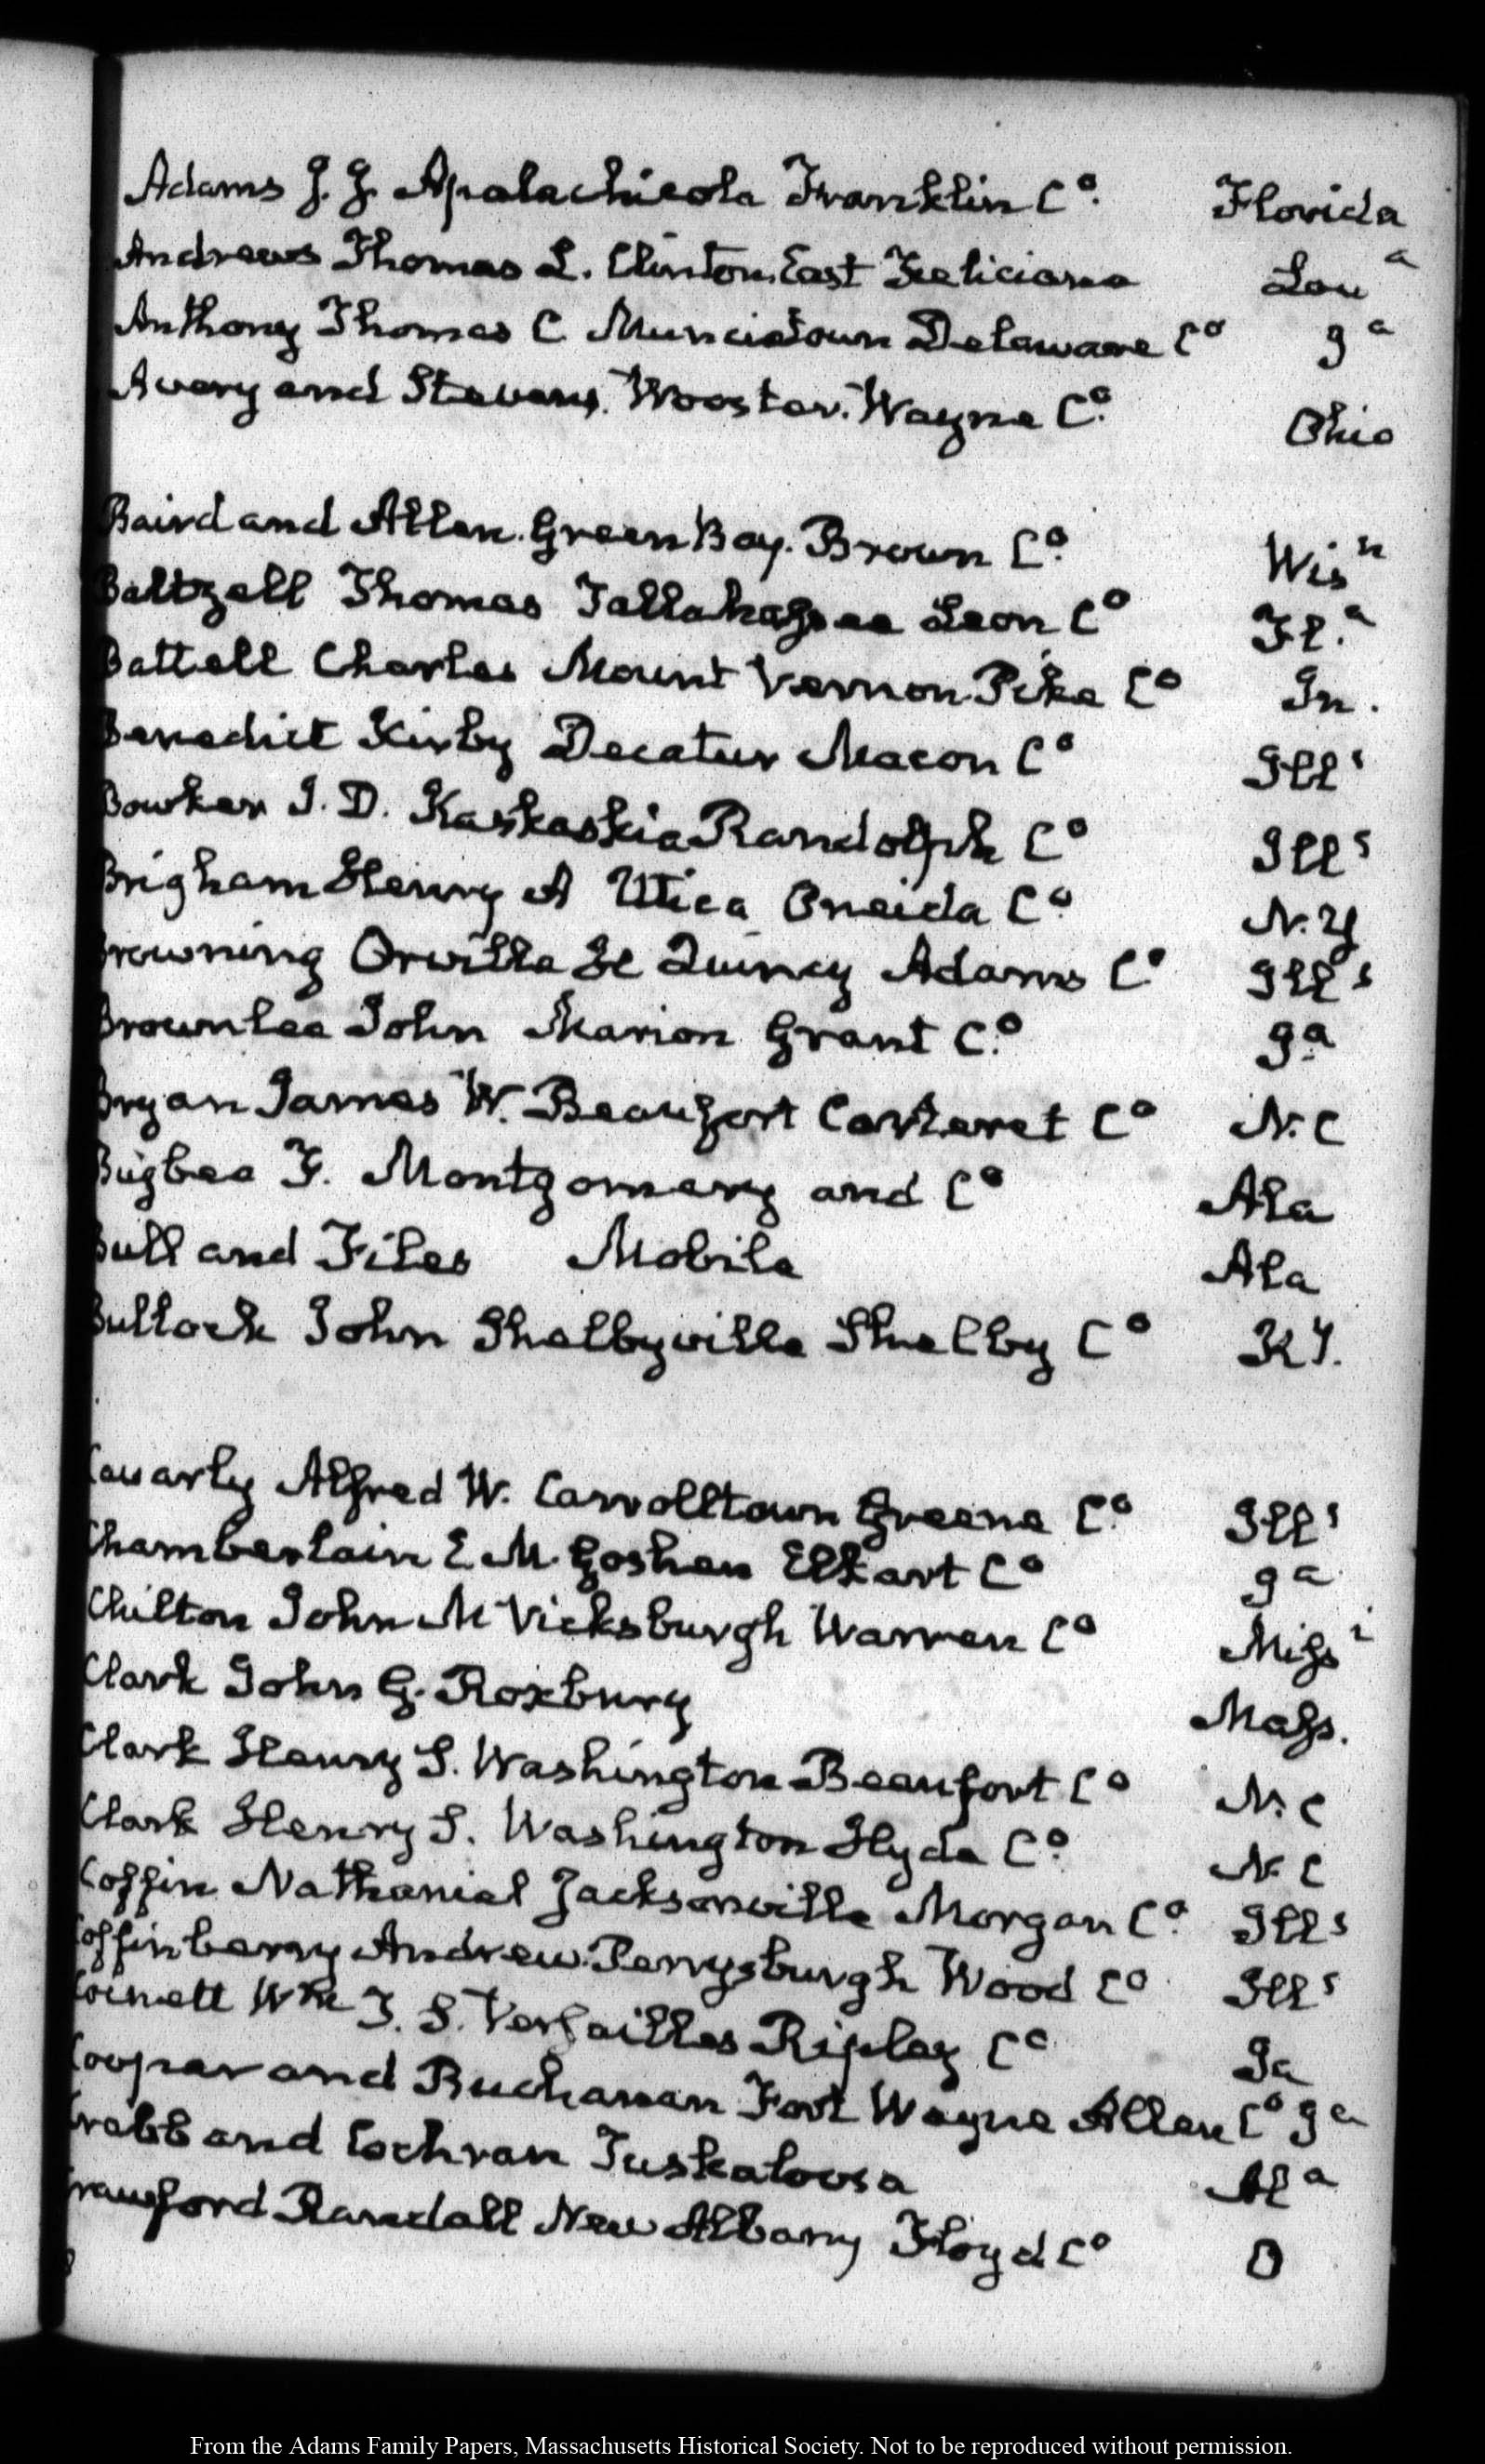 Adams J. J. Apalachicola Franklin Co. Florida
Andrews Thomas L. Clinton East Feliciana Loua
Anthony Thomas C Muncietown Delaware Co Ia
Avery and Stevens. Wooster. Wayne Co. Ohio
Baird and Allen. Green Bay. Brown Co. Wisn
Baltzell Thomas Tallahassee Leon Co Fl.a
Battell Charles Mount Vernon Pike Co In.
Benedict Kirby Decatur Macon Co Ills
Bowker J. D. Kaskaskia Randolph Co Ills
Brigham Henry A Utica Oneida Co N. Y
Browning Orville H Quincy Adams Co Ills
Brownlee John Marion Grant Co. Ia
Bryan James W. Beaufort Carteret Co N. C
Bugbee F. Montgomery and Co Ala
Bull and Files Mobile Ala
Bullock John Shelbyville Shelby Co Ky.
Cavarly Alfred W. Carrolltown Greene Co Ills
Chamberlain E M. Goshen Elkart Co Ia
Chilton John M Vicksburgh Warren Co Missi
Clark John G. Roxbury Mass.
Clark Henry S. Washington Beaufort Co N. C
Clark Henry S. Washington Hyde Co. N. C
Coffin Nathaniel Jacksonville Morgan Co. Ills
Coffinberry Andrew. Perrysburgh Wood Co Ills
Wm T. S. Versailles Ripley Co Ia
Cooper and Buchanan Fort Wayne Allen Co Ia
Crabb and Cochran Tuskaloosa Ala
Crawford Randall New Albany Floyd Co O
From the Adams Family Papers, Massachusetts Historical Society. Not to be reproduced without permission.